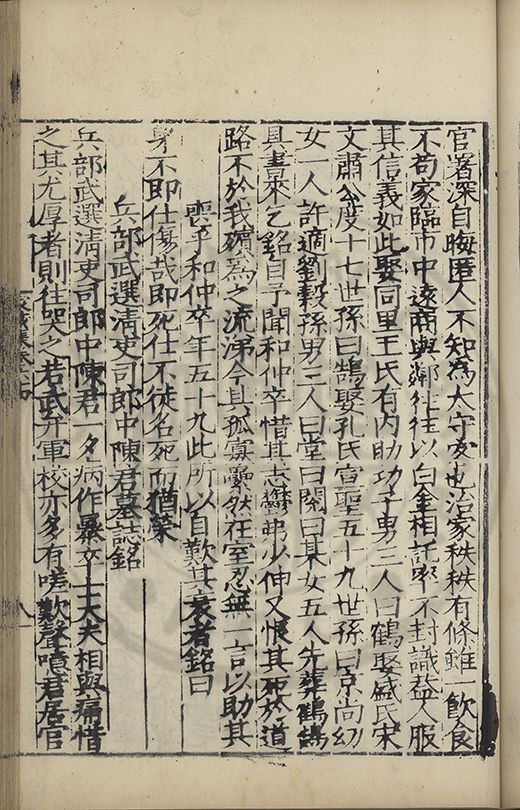 官署深自晦匿人不知為太守家也治家秩秩有條雖一飲食
不苟家臨市中遠商與鄰往往以白金相託畧不封識葢人服
其信義如此娶同里王氏有内助功子男三人曰鶴娶盛氏宋
文肅公度十七世孫曰鵠娶孔氏宣聖五十九世孫曰京尚幼
女一人許適劉穀孫男三人曰堂曰閑曰某女五人先葬鶴鵠
具書來乞銘自予聞和仲卒惜其志鬱弗少伸又恨其死於道
路不於我殯為之流涕今其孤寡纍然在室忍無一言以助其
喪乎和仲卒年五十九此所以自歎其衰者銘曰
身不即仕傷哉即死仕不徒名死而猶榮
兵部武選清吏司郎中陳君墓誌銘
兵部武選清吏司郎中陳君一夕病作暴卒士大夫相與痛惜
之其尤厚者則往哭之若武弁軍校亦多有嗟歎聲噫君居官
八